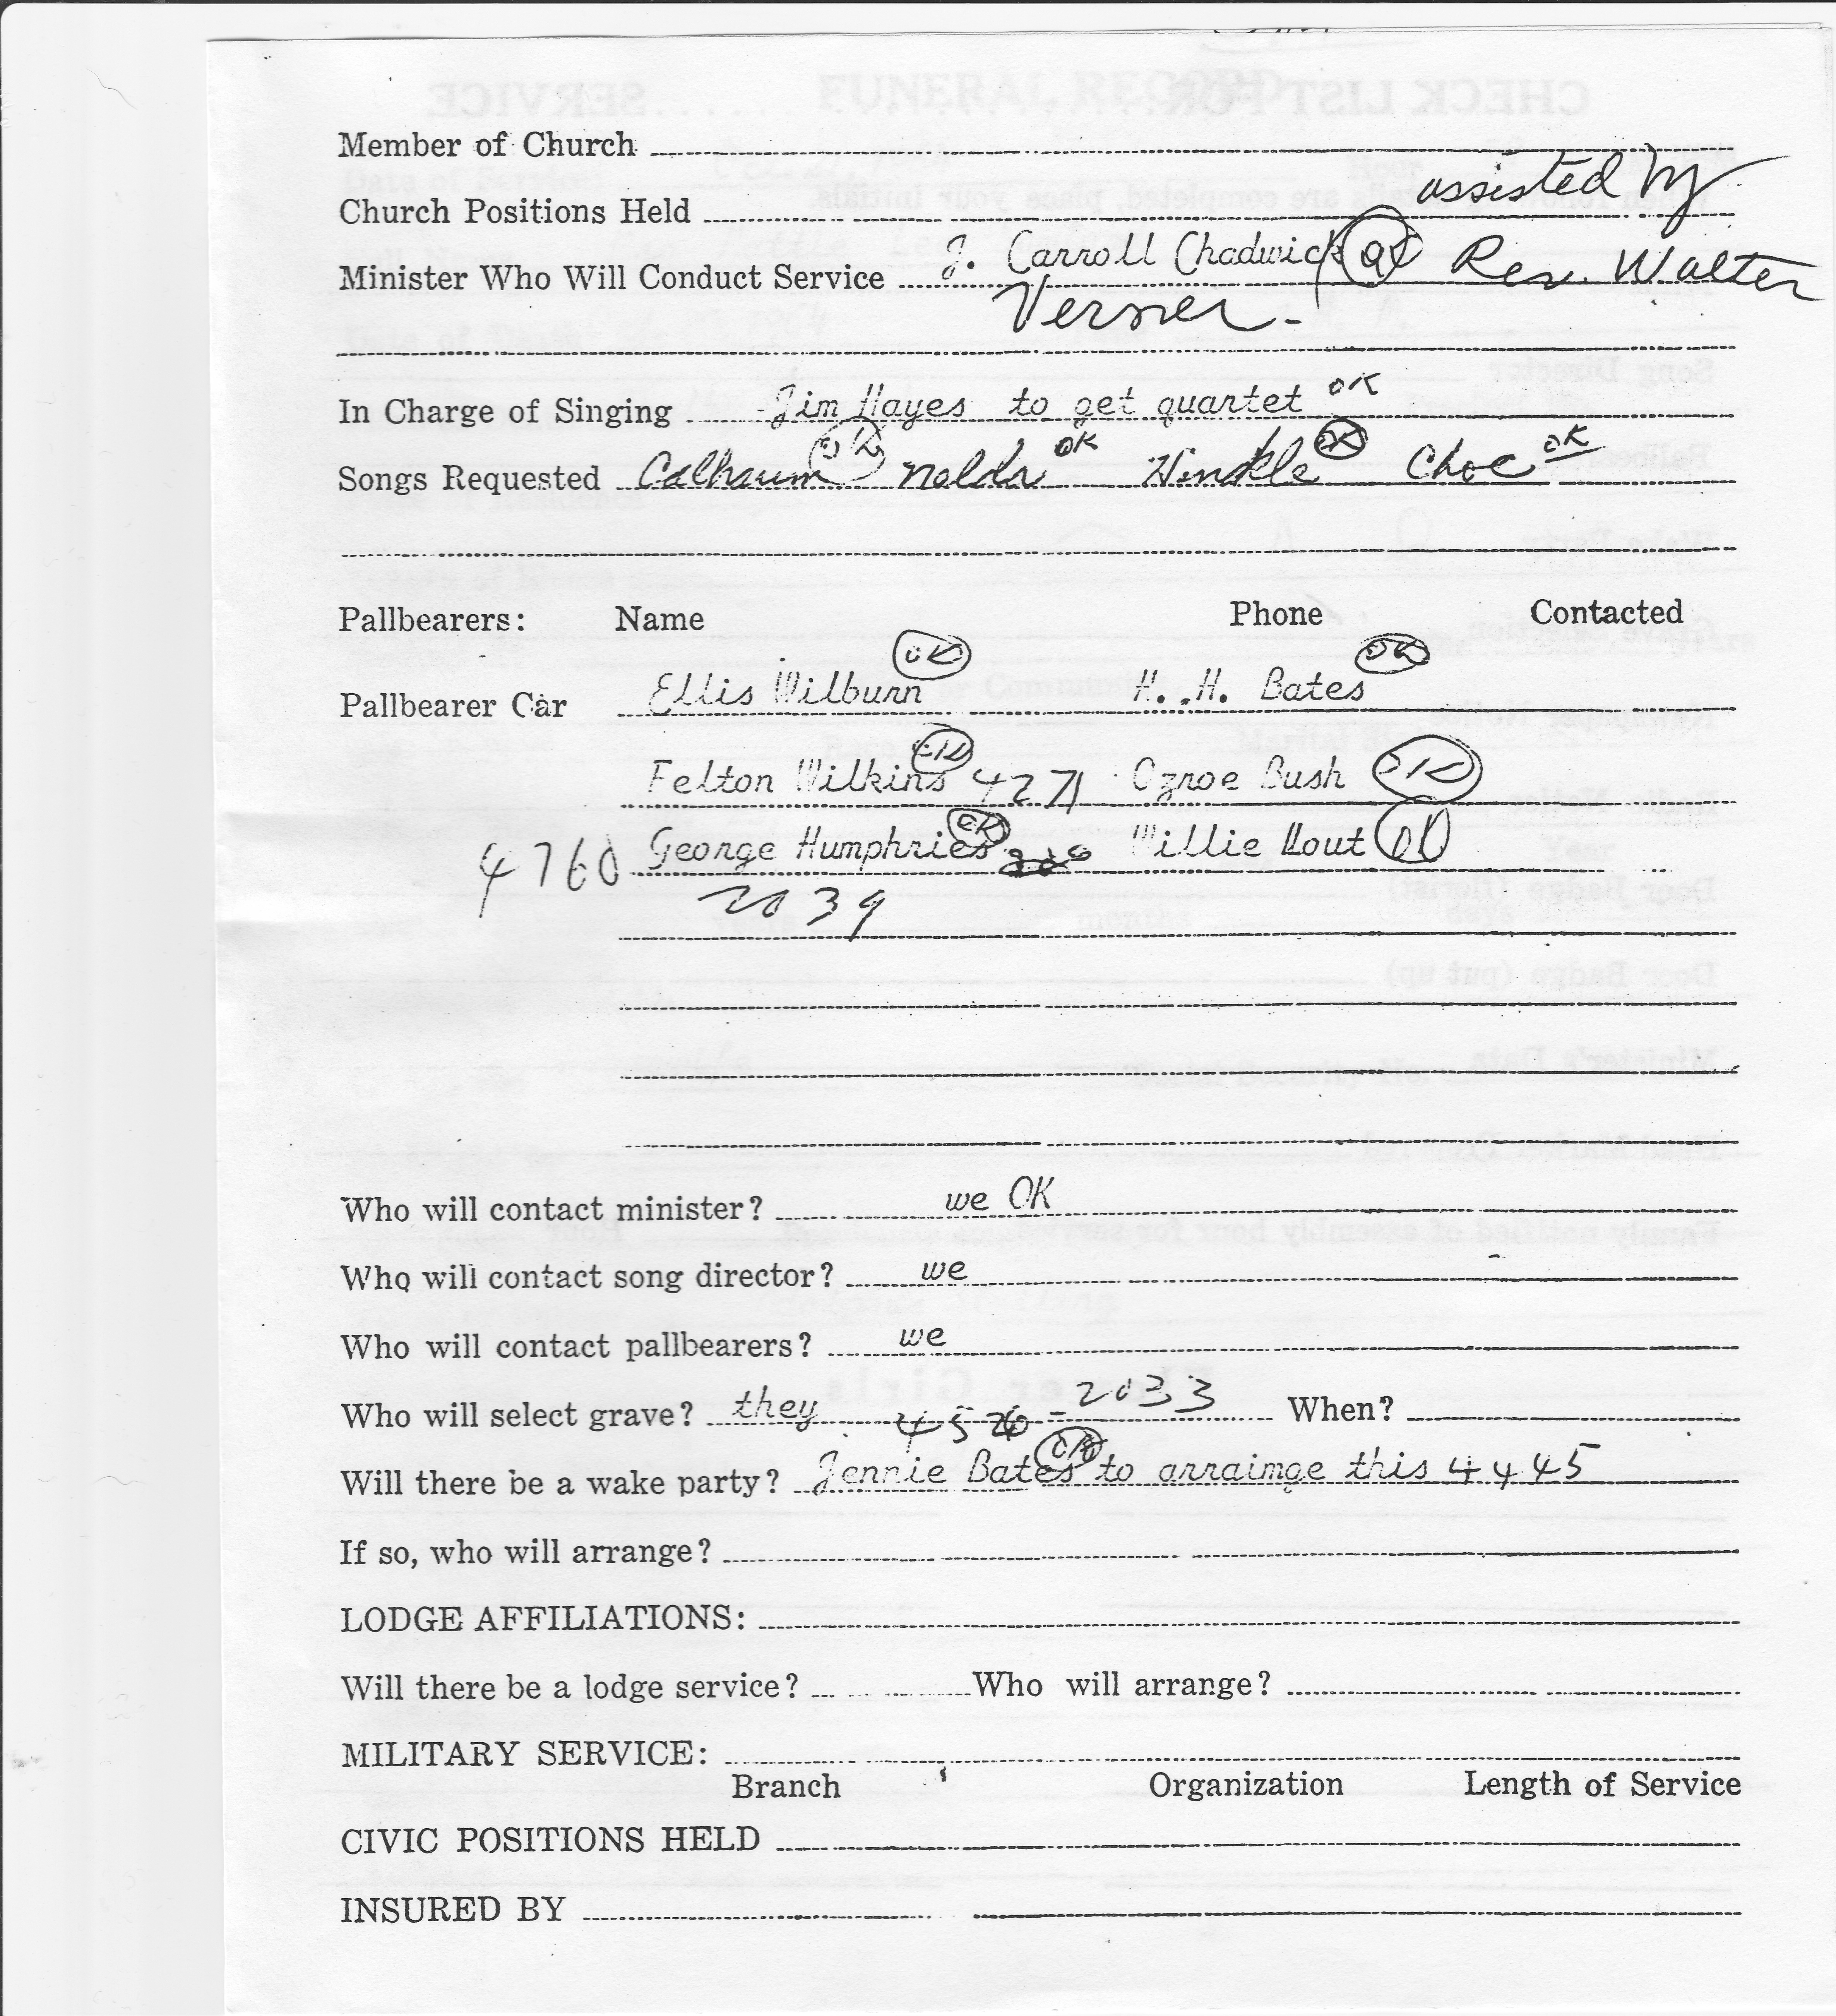 Member of Church
assisted by
Church Positions Held
Minister Who Will Conduct Service J. Carroll Chadwick Rev. Walter
Verner -
In Charge of Singing Jim Hayes to get quartet OK
Songs Requested Calhoum OK Nelda OK Hinkle OK Choc OK
Pallbearers: Name Phone Contacted
Pallbearer Car Ellis Wilburn OK H. H. Bates OK
Felton Wilkins OK 4271 Ozroe Bush OK
4760 George Humphries OK Willie Hout OK
2039
Who will contact minister? we OK
Who will contact song director? we
Who will contact pallbearers? we
Who will select grave? they 2033 When?
Will there be a wake party? Jennie Bates OK to arraimge this 4445
If so, who will arrange?
LODGE AFFILIATIONS:
Will there be a lodge service? Who will arrange?
MILITARY SERVICE:
Branch Organization Length of Service
CIVIC POSITIONS HELD
INSURED BY